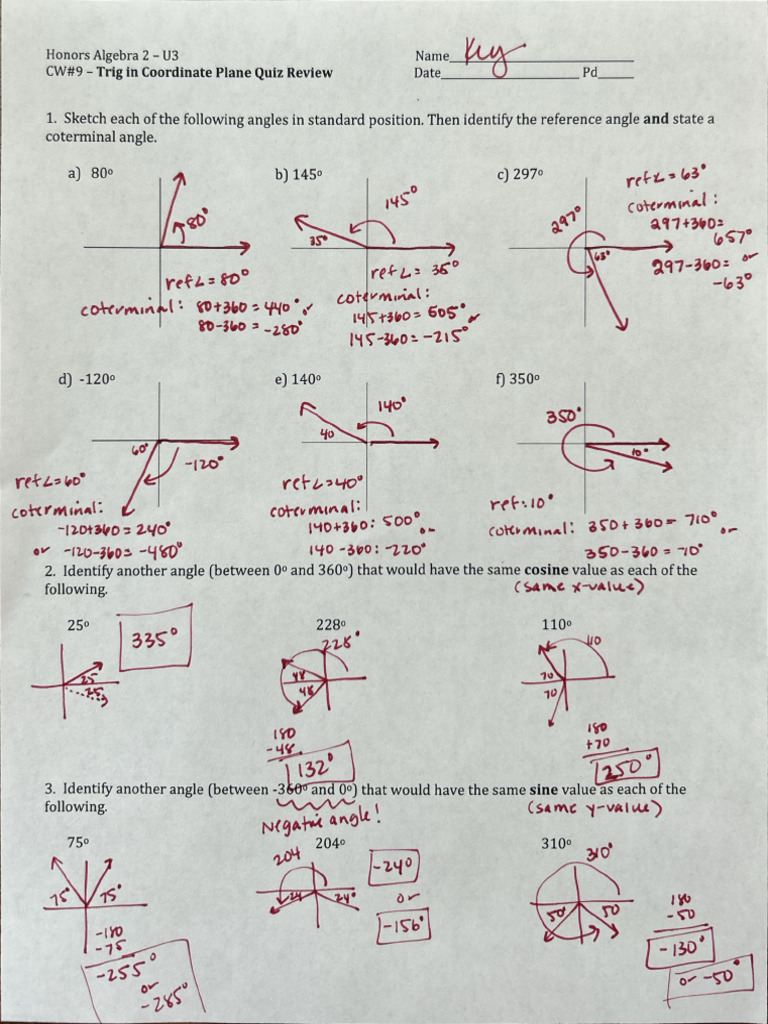 Honors Algebra 2 – U3
Name Key
CW#9 – Trig in Coordinate Plane Quiz Review
Date Pd
1. Sketch each of the following angles in standard position. Then identify the reference angle and state a
coterminal angle.
a) 80°
80°
ref∠ = 80°
coterminal: 80+360 = 440° or
80-360 = -280°
b) 145°
145°
35°
ref∠ = 35°
coterminal:
145+360 = 505° or
145-360 = -215°
c) 297°
297°
63°
ref∠ = 63°
coterminal:
297+360=
657°
or
297-360=
-63°
d) -120°
60°
-120°
ref∠=60°
coterminal:
-120+360 = 240°
or -120-360= -480°
e) 140°
140°
40
ref∠=40°
coterminal:
140+360: 500°
or
140-360: -220°
f) 350°
350°
10°
ref: 10°
coterminal: 350 + 360 = 710°
or
350-360 = -10°
2. Identify another angle (between 0° and 360°) that would have the same cosine value as each of the
following.
(same x-value)
25°
25
25
335°
228°
228°
48
48
180
-48
132°
110°
110
70
70
180
+70
250°
3. Identify another angle (between -360° and 0°) that would have the same sine value as each of the
following.
Negative angle!
(same y-value)
75°
75°
75°
-180
-75
-255°
or
-285°
204°
204
24
24°
-24°
or
-156°
310°
310°
50
50
180
-50
-130°
or -50°